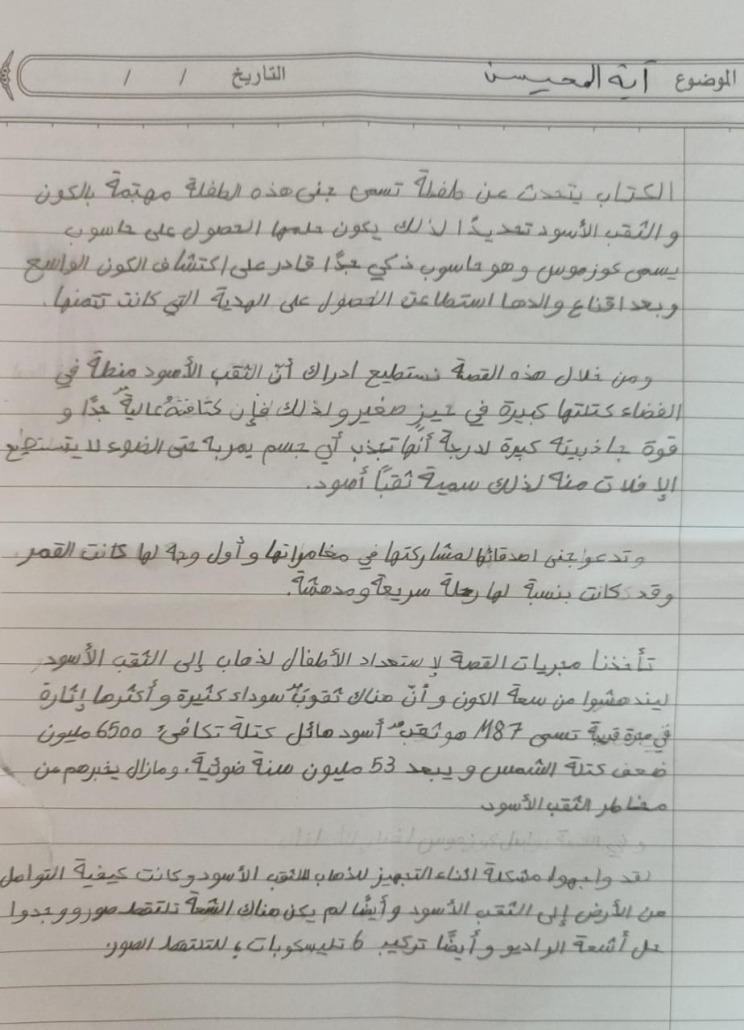 الموضوع آية المحيسن التاريخ / /
الكتاب يتحدث عن طفلة تسمى جنى هذه الطفلة مهتمة بالكون
والثقب الأسود تحديدًا لذلك يكون حلمها الحصول على حاسوب
يسمى كوزموس وهو حاسوب ذكي جدًا قادر على اكتشاف الكون الواسع
وبعد اقناع والدها استطاعت الحصول على الهدية التي كانت تتمنها.
ومن خلال هذه القصة نستطيع ادراك أنّ الثقب الأسود منطة في
الفضاء كتلتها كبيرة في حيز صغير ولذلك فإن كثافتهُ عالية جدًا و
قوة جاذبيته كبيرة لدرجة أنها تجذب أي جسم يمر به حتى الضوء لا يتستطيع
الإفلات منه لذلك سمية ثقبًا أسود.
وتدعوا جنى اصدقائها لمشاركتها في مغامراتها وأول وجة لها كانت القمر
وقد كانت بنسبة لها رحلة سريعة ومدهشة.
تأخذنا مجريات القصة لإستعداد الأطفال لذهاب إلى الثقب الأسود
ليندهشوا من سعة الكون وأنّ هناك ثقوبًا سوداء كثيرة وأكثرها إثارة
في مجرة قريبة تسمى M87 هو ثقب أسود هائل كتلة تكافئ 6500 مليون
ضعف كتلة الشمس ويبعد 53 مليون سنة ضوئية. ومازال يخبرهم عن
مخاطر الثقب الأسود
لقد واجهوا مشكلة اثناء التجهيز للذهاب للثقب الأسود وكانت كيفية التواصل
من الأرض إلى الثقب الأسود وأيضًا لم يكن هناك اشعة تلتقط صور ووجدوا
حل أشعة الراديو وأيضًا تركيب 6 تليسكوبات للتلتقط الصور.